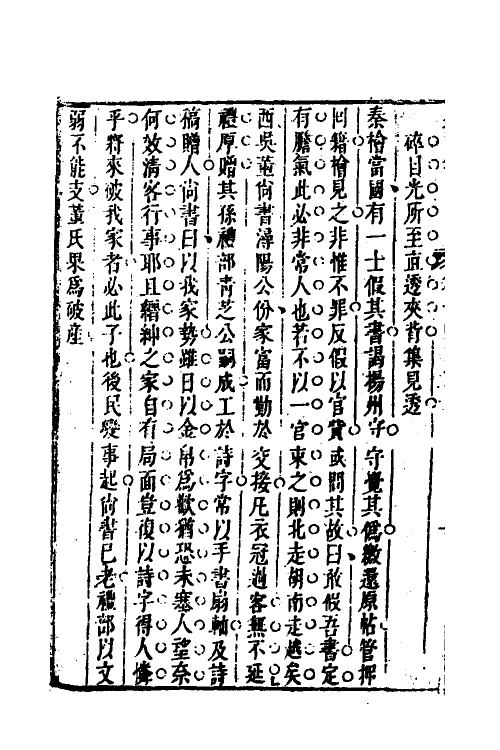 碎目光所至直透夾背集見透
秦檜當國有一士假其書謁楊州守守覺其僞繳還原帖管押
囘籍檜見之非惟不罪反假以官資或問其故曰敢假吾書定
有膽氣此必非常人也若不以一官束之則北走胡南走越矣
西吳董尚書潯陽公份家富而勤於交接凡衣冠過客無不延
禮原贈其孫禮部青芝公嗣成工於詩字常以手書扇軸及詩
稿贈人尚書曰以我家勢雖日以金帛爲歡猶恐未塞人望奈
何效清客行事耶且縉紳之家自有局面豈復以詩字得人憐
乎將來破我家者必此子也後民變事起尚書已老禮部以文
弱不能支董氏果爲破産